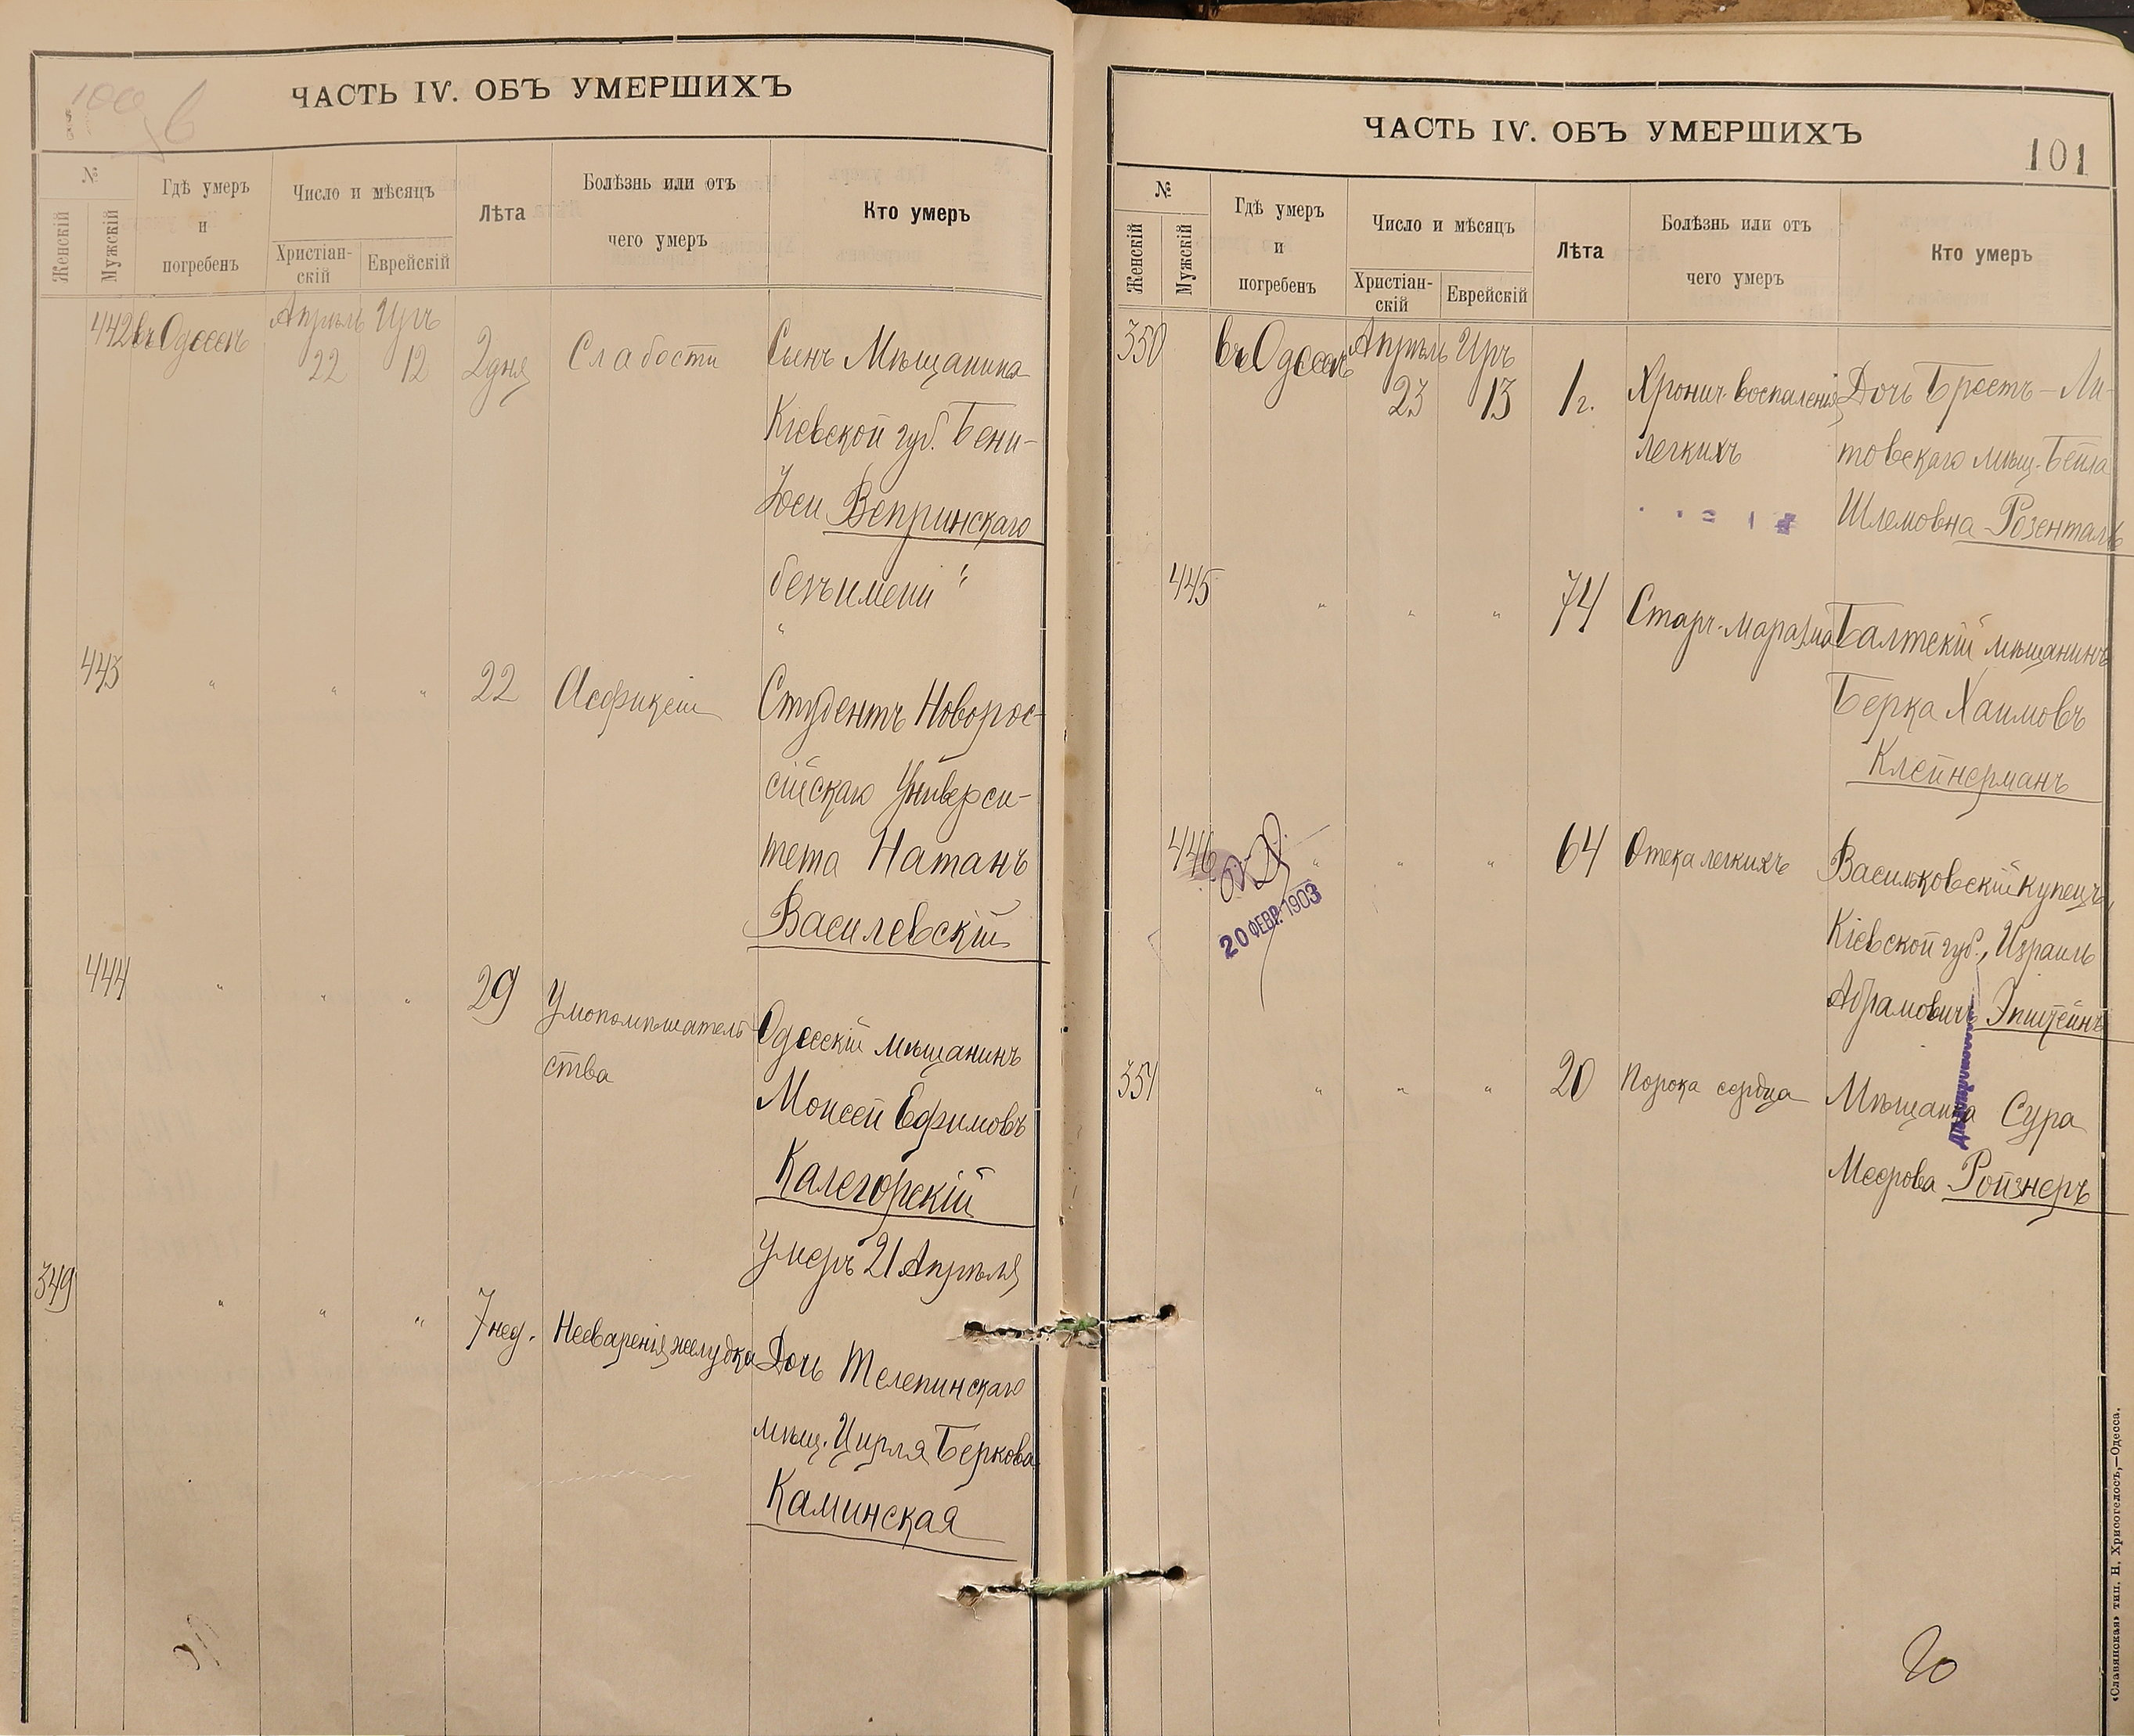 ЧАСТЬ IV. ОБЪ УМЕРШИХЪ
№
Женскій
Мужскій
Гдѣ умеръ
и
погребенъ
Число и мѣсяцъ
Христіан-
скій
Еврейскій
Лѣта
Болѣзнь или отъ
чего умеръ
Кто умеръ
442 въ Одессѣ Апрѣль 22 Іиръ 12 2 дня Слабости Сынъ Мѣщанина
Кіевской губ. Бени-
Іоси Вепринскаго
безъ имени "
443 " " " 22 Асфиксіи Студентъ Новорос-
сійскаго Универси-
тета Натанъ
Василевскій
444 " " " 29 Умопомѣшатель Одесскій мѣщанинъ
ства
Моисей Ефимовъ
Калегорскій
умеръ 21 Апрѣля
349 " " " 7 нед. Несваренія желудка Дочь Телепинскаго
мѣщ. Цирля Беркова
Каминская
ЧАСТЬ IV. ОБЪ УМЕРШИХЪ
101
№
Женскій
Мужскій
Гдѣ умеръ
и
погребенъ
Число и мѣсяцъ
Христіан-
скій
Еврейскій
Лѣта
Болѣзнь или отъ
чего умеръ
Кто умеръ
350 въ Одессѣ Апрѣль 23 Іиръ 13 1 г. Хронич. воспаленія Дочь Брестъ-Ли-
легкихъ товскаго мѣщ. Бейла
Шлемовна Розенталь
445 " " " 74 Старч. маразма Балтскій мѣщанинъ
Берка Хаимовъ
Клейнерманъ
446 " " " 64 Отека легкихъ Васильковскій купецъ,
20 ФЕВР. 1903
Кіевской губ., Израиль
Абрамовичъ Эпштейнъ
351 " " " 20 Порока сердца Мѣщанка Сура
Меерова Ройзнеръ
«Славянская» тип. Н. Хрисогелосъ,—Одесса.